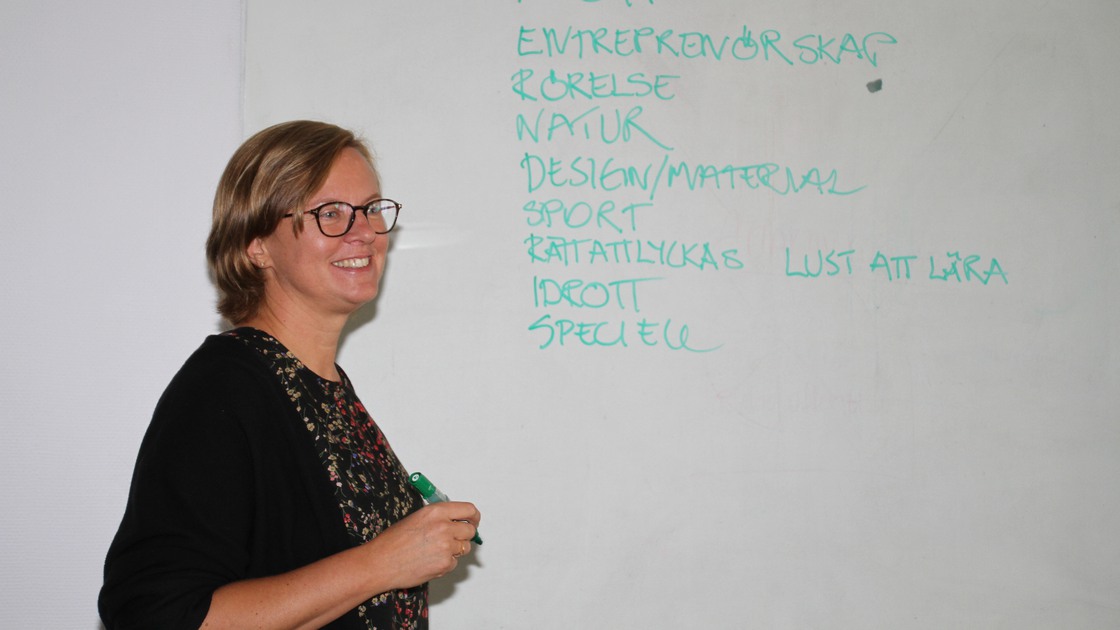 ENTREPRENÖRSKAP
RÖRELSE
NATUR
DESIGN/MATERIAL
SPORT
RÄTT ATT LYCKAS LUST ATT LÄRA
IDROTT
SPECIELL